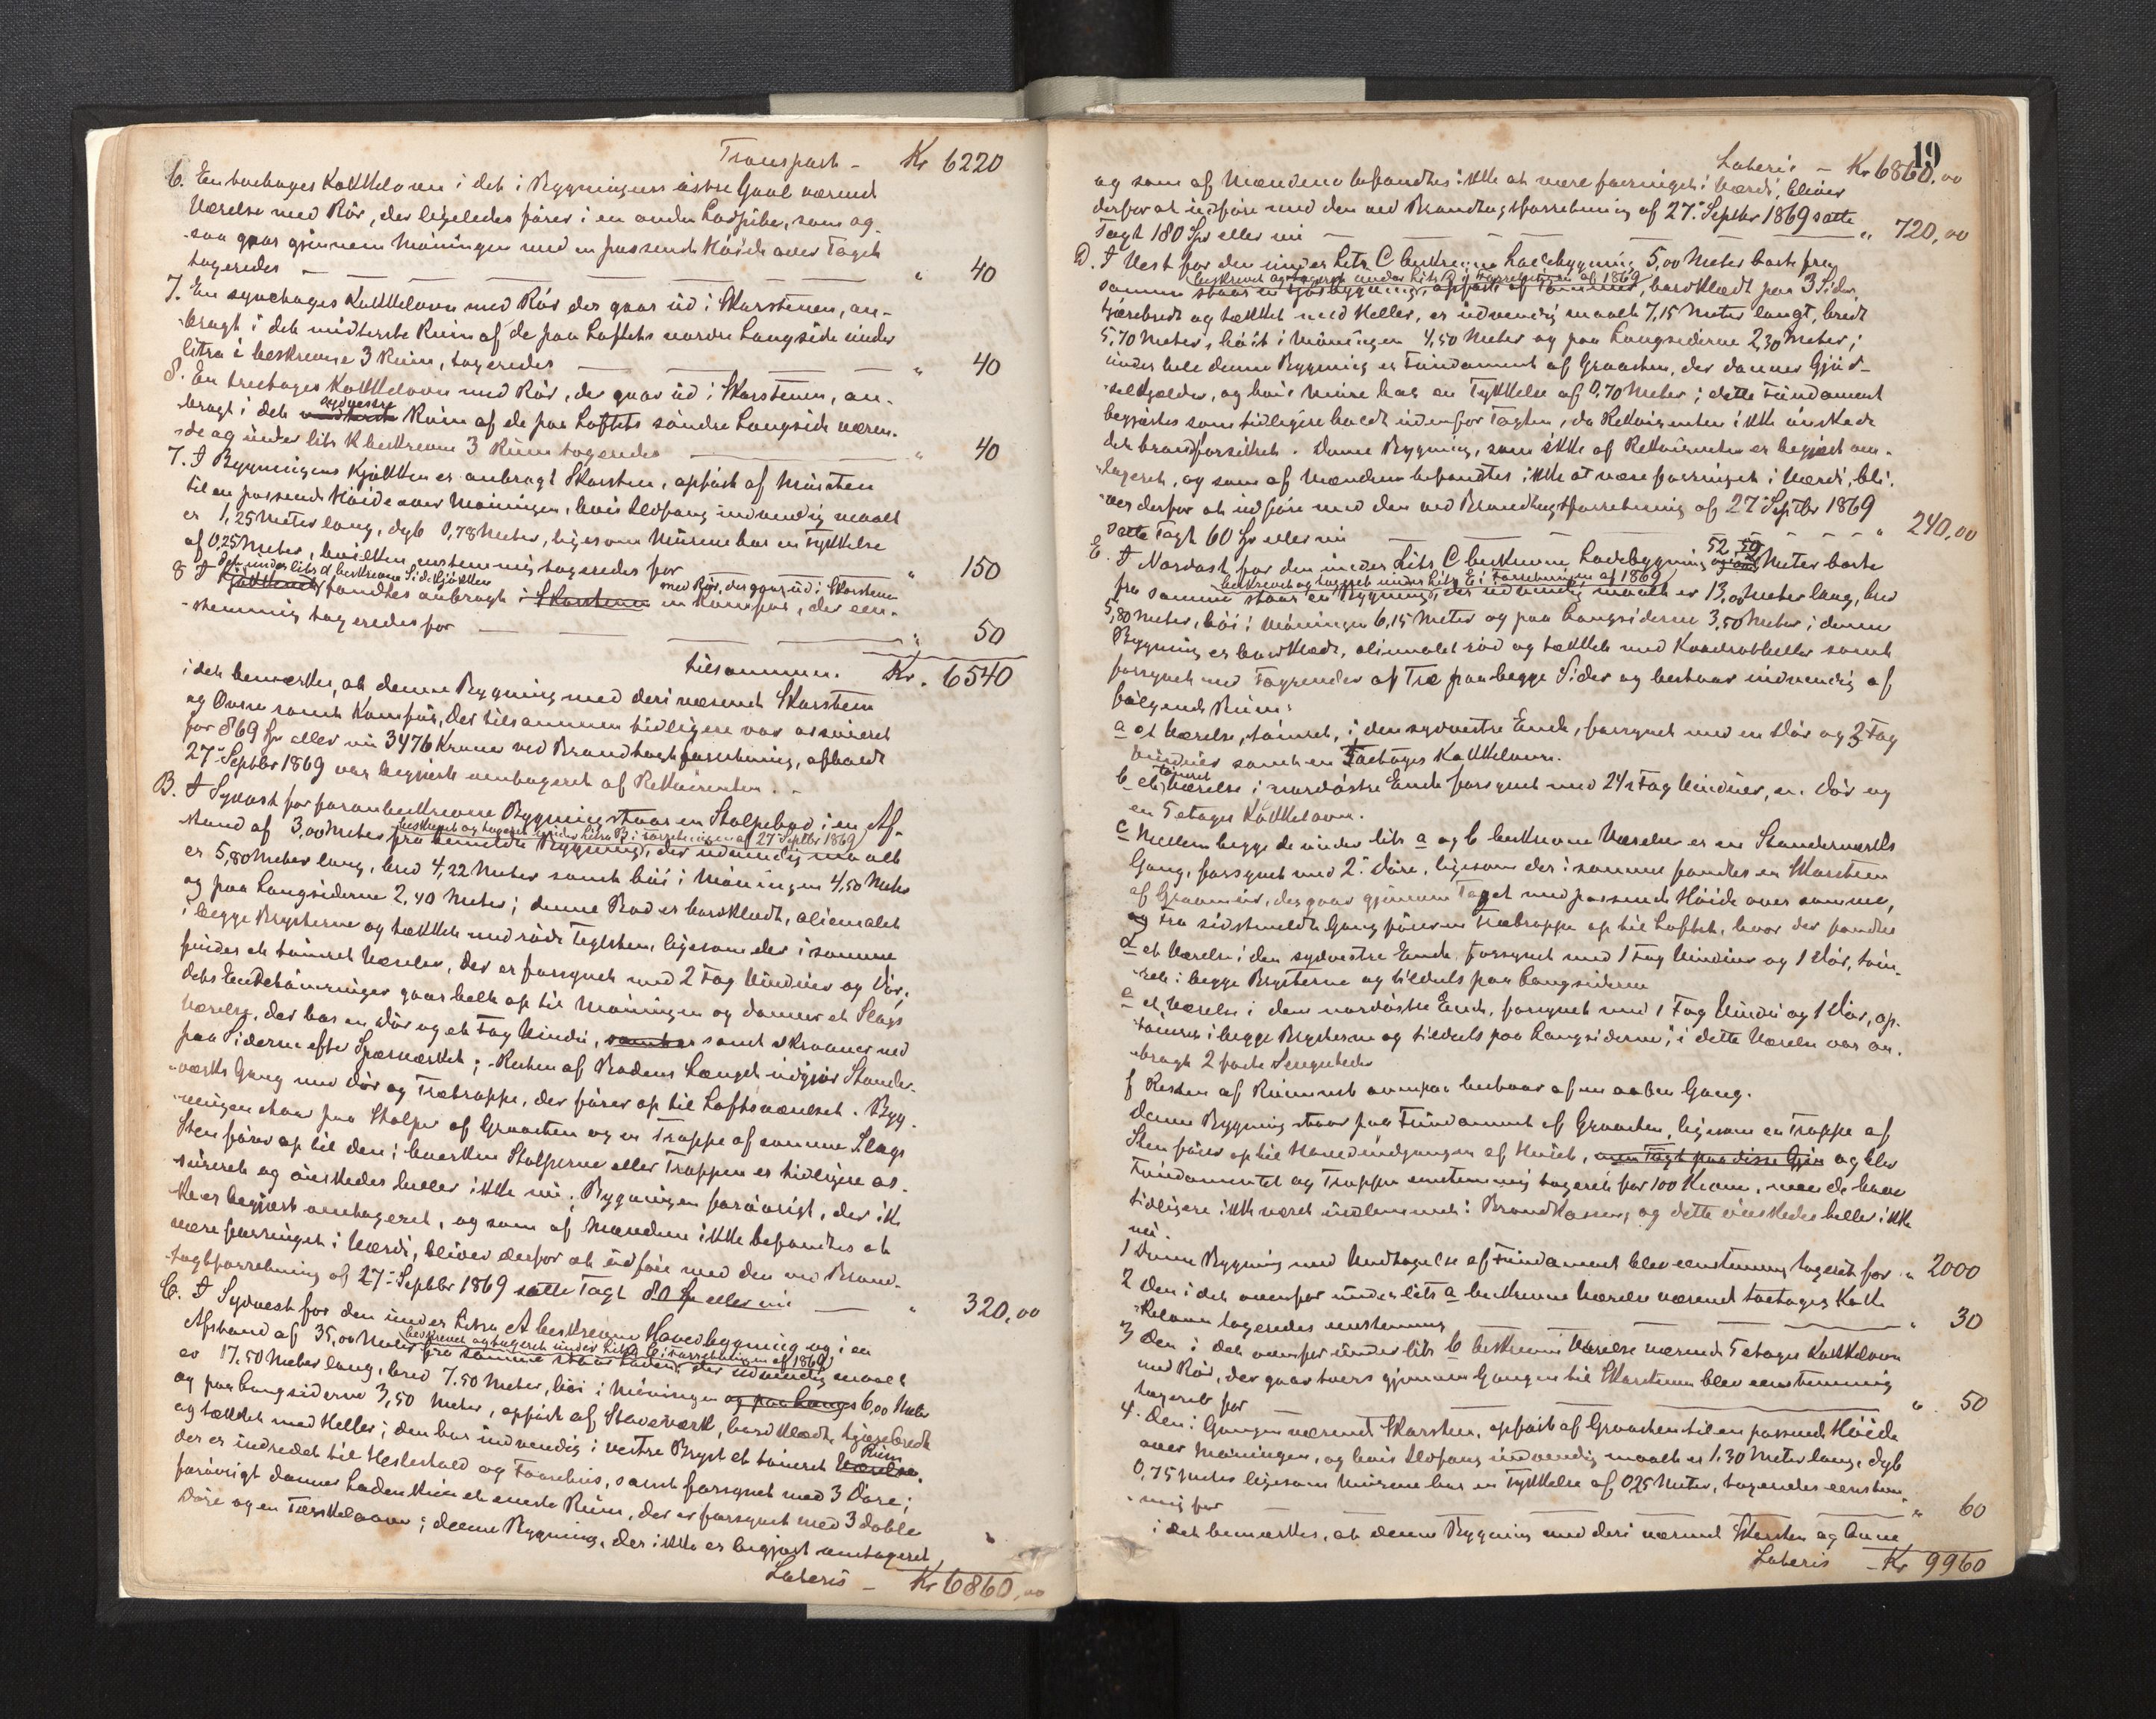 Transport - Kr 6220
6. En toetages Kakkelovn i det i Bygningens østre Gavl værende
Værelse med Rør, der ligeledes fører i en anden Lodpibe, som og-
saa gaar gjennem Møningen med en passende Høide over Taget
tageredes — — — — — " 40
7. En syvetages Kakkelovn med Rør der gaar ud i Skorstenen, an-
bragt i det midterste Rum af de paa Loftets nordre Langside under
litra i beskrevne 3 Rum, tageredes — — — — " 40
8. En treetages Kakkelovn med Rør, der gaar ud i Skorstenen, an-
bragt i det sydvestre Rum af de paa Loftets søndre Langside væren-
de og under litr. k beskrevne 3 Rum tageredes — — " 40
7. I Bygningens Kjøkken er anbragt Skorsten, opført af Mursten
til en passende Høide over Møningen, hvis Ildfang indvendig maalt
er 1,25 Meter lang, dyb 0,78 Meter, ligesom Murene har en Tykkelse
af 0,25 Meter, hvilken enstemmig tageredes for — — " 150
8 I det under litr. d beskrevne Sidekjøkken
Kjøkkenet fandtes anbragt i Skorstenen en Komfur, med Rør, der gaar ud i Skorstenen der een-
stemmig tageredes for — — — — " 50
tilsammen. Kr. 6540
i det bemærkes, at denne Bygning med deri værende Skorsten
og Ovne samt Komfur, der tilsammen tidligere var assureret
for 869 Spd eller nu 3476 Kroner ved Brandtagtforretning, afholdt
27de Septbr 1869 var begjært omtageret af Rekvirenten. -
B. I Sydost for foranbeskrevne Bygning staar en Stolpebod i en Af-
beskrevet og tageret under Litra B i Forretningen af 27 Septbr 1869
stand af 3,00 Meter fra anmeldte Bygning, der udvendig maalt
er 5,80 Meter lang, bred 4,22 Meter samt høi i Møningen 4,50 Meter
og paa Langsiderne 2,40 Meter; denne Bod er bordklædt, oliemalet
i begge Brysterne og tækket med røde Teglsten, ligesom der i samme
findes et tømret Værelse, der er forsynet med 2 Fag Vinduer og Dør;
dets Endetømringer gaar helt op til Møningen og danner et Slags
Værelse, der har en Dør og et Fag Vindu, samt skraaner ned
paa Siderne efter Spærværket; Resten af Bodens Længde udgjør Stander-
værks Gang med Dør og Trætrappe, der fører op til Loftsværelset. Byg-
ningen staar paa Stolper af Graasten og en Trappe af samme Slags
Sten fører op til den; hverken Stolperne eller Trappen er tidligere as-
sureret og ønskedes heller ikke nu; Bygningen forøvrigt, der ik-
ke er begjært omtageret, og som af Mændene ikke befandtes at
være forringet i Værdi, bliver derfor at udføre med den ved Brand-
tagtforretning af 27de Septbr 1869 satte Tagt 80 Sp eller nu — " 320,00
C. I Sydvest for den under Litra A beskrevne Hovedbygning og i en
beskrevet og tageret under Litr. C i Forretningen af 1869
Afstand af 35,00 Meter fra samme staar Laden, der udvendig maalt
er 17,50 Meter lang, bred 7.50 Meter, høi i Møningen og paa Langs 6,00 Meter
og paa Langsiderne 3,50 Meter, opført af Staveværk, bordklædt, tjærebredt
og tækket med Heller; den har indvendig i vestre Bryst et tømret Værelse Rum,
der er indredet til Hestestald og Faarehus, samt forsynet med 3 Døre;
forøvrigt danner Laden kun et eneste Rum, der er forsynet med 3 doble
Døre og en Tærskelovn; denne Bygning, der ikke er begjært omtageret,
Lateris - Kr 6860,00
19
Lateris - Kr 6860,00
og som af Mændene befandtes ikke at være forringet i Værdi, bliver
derfor at udføre med den ved Brandtagtforretning af 27de Septbr 1869 satte
Tagt 180 Spd eller nu — — — — — " 720,00
D. I Vest for den under Litr. C beskrevne Ladebygning 5,00 Meter borte fra
beskrevet og tageret under Litr. D i Forretningen af 1869
samme staar en Fjøsbygning, opført af Tømmer, bordklædt paa 3 Sider,
tjærebredt og tækket med Heller, er udvendig maalt 7,15 Meter langt, bredt
5,70 Meter, høit i Møningen 4,50 Meter og paa Langsiderne 2,30 Meter;
under hele denne Bygning er Fundament af Graasten, der danner Gjød-
selkjælder, og hvis Mure har en Tykkelse af 0,70 Meter; dette Fundament
begjærtes som tidligere holdt udenfor Tagten, da Rekvirenten ikke ønskede
det brandforsikret. Denne Bygning, som ikke af Rekvirenten er begjært om-
tageret, og som af Mændene befandtes ikke at være forringet i Værdi, bli-
ver derfor at udføre med den ved Brandtagtforretning af 27de Septbr 1869
satte Tagt 60 Sp eller nu — — — — " 240,00
E. I Nordost for den under Litr. C beskrevne Ladebygning 52,50 Meter borte
beskrevet og tageret under Litr. E i Forretningen af 1869
fra samme staar en Bygning, der udvendig maalt er 13,00 Meter lang, bred
5,80 Meter, høi i Møningen 6,15 Meter og paa Langsiderne 3,50 Meter; denne
Bygning er bordklædt, oliemalet rød og tækket med Kvadratheller samt
forsynet med Tagrender af Træ paa begge Sider og bestaar indvendig af
følgende Rum:
a et Værelse, tømret, i den sydvestre Ende, forsynet med en Dør og 3 Fag
Vinduer samt en Toetages Kakkelovn.
b et tømret Værelse i nordøstre Ende forsynet med 2½ Fag Vinduer, en Dør og
en 5 etages Kakkelovn.
c Mellem begge de under litr. a og b beskrevne Værelser er en Standerværks
Gang, forsynet med 2de Døre, ligesom der i samme fandtes en Skorsten
af Graamur, der gaar gjennem Taget med passende Høide over samme,
og fra sidstmeldte Gang fører en Trætrappe op til Loftet, hvor der fandtes
d et Værelse i den sydvestre Ende, forsynet med 1 Fag Vinduer og 1 Dør, tøm-
ret i begge Brysterne og tildels paa Langsiderne
e et Værelse i den nordøstre Ende, forsynet med 1 Fag Vindu og 1 Dør, op-
tømret i begge Brysterne og tildels paa Langsiderne; i dette Værelse var an-
bragt 2 faste Sengesteder
f Resten af Rummet ovenpaa bestaar af en aaben Gang.
Denne Bygning staar paa Fundament af Graasten, ligesom en Trappe af
Sten fører op til Hovedindgangen af Huset, og blev
Fundamentet og Trappen enstemmig tageret for 100 Kroner, men de have
tidligere ikke været indlemmet i Brandkassen, og dette ønskedes heller ikke
nu.
1 Denne Bygning med Undtagelse af Fundament blev eenstemmig tageret for " 2000
2 Den i det ovenfor under litr. a beskrevne Værelse værende toetages Kak-
kelovn tageredes enstemmig — — — — " 30
3 Den i det ovenfor under litr. b beskrevne Værelse værende 5 etages Kakkelovn
med Rør, der gaar tvers gjennem Gangen til Skorstenen blev eenstemmig
tageret for — — — " 50
4. Den i Gangen værende Skorsten, opført af Graasten til en passende Høide
over Møningen, og hvis Ildfang indvendig maalt er 1,30 Meter lang, dyb
0,75 Meter ligesom Murene har en Tykkelse af 0,25 Meter, tageredes eenstem-
mig for — — — — " 60
i det bemærkes, at denne Bygning med deri værende Skorsten og Ovne
Lateris - Kr 9960